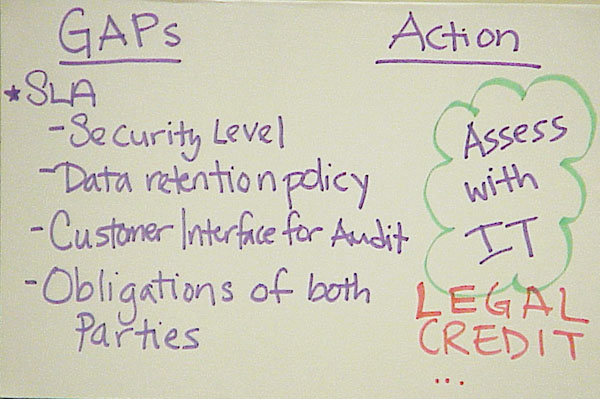 GAPs
Action
*SLA
-Security Level
-Data retention policy
-Customer Interface for Audit
-Obligations of both
Parties
Assess
with
IT
LEGAL
CREDIT
...